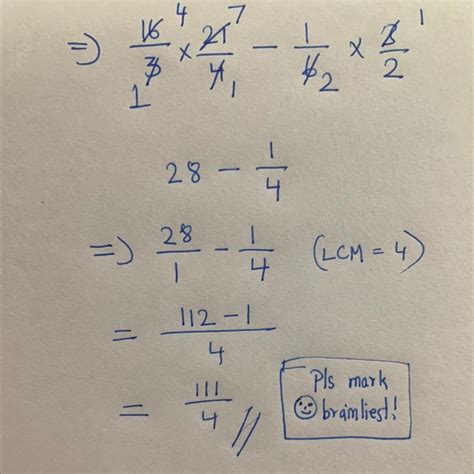 =) 16/3 4 1 × 21/4 7 1 − 1/6 2 × 3/2 1
28 − 1/4
=) 28/1 − 1/4 (LCM = 4)
= 112 − 1/4
= 111/4 //
Pls mark
brainliest!